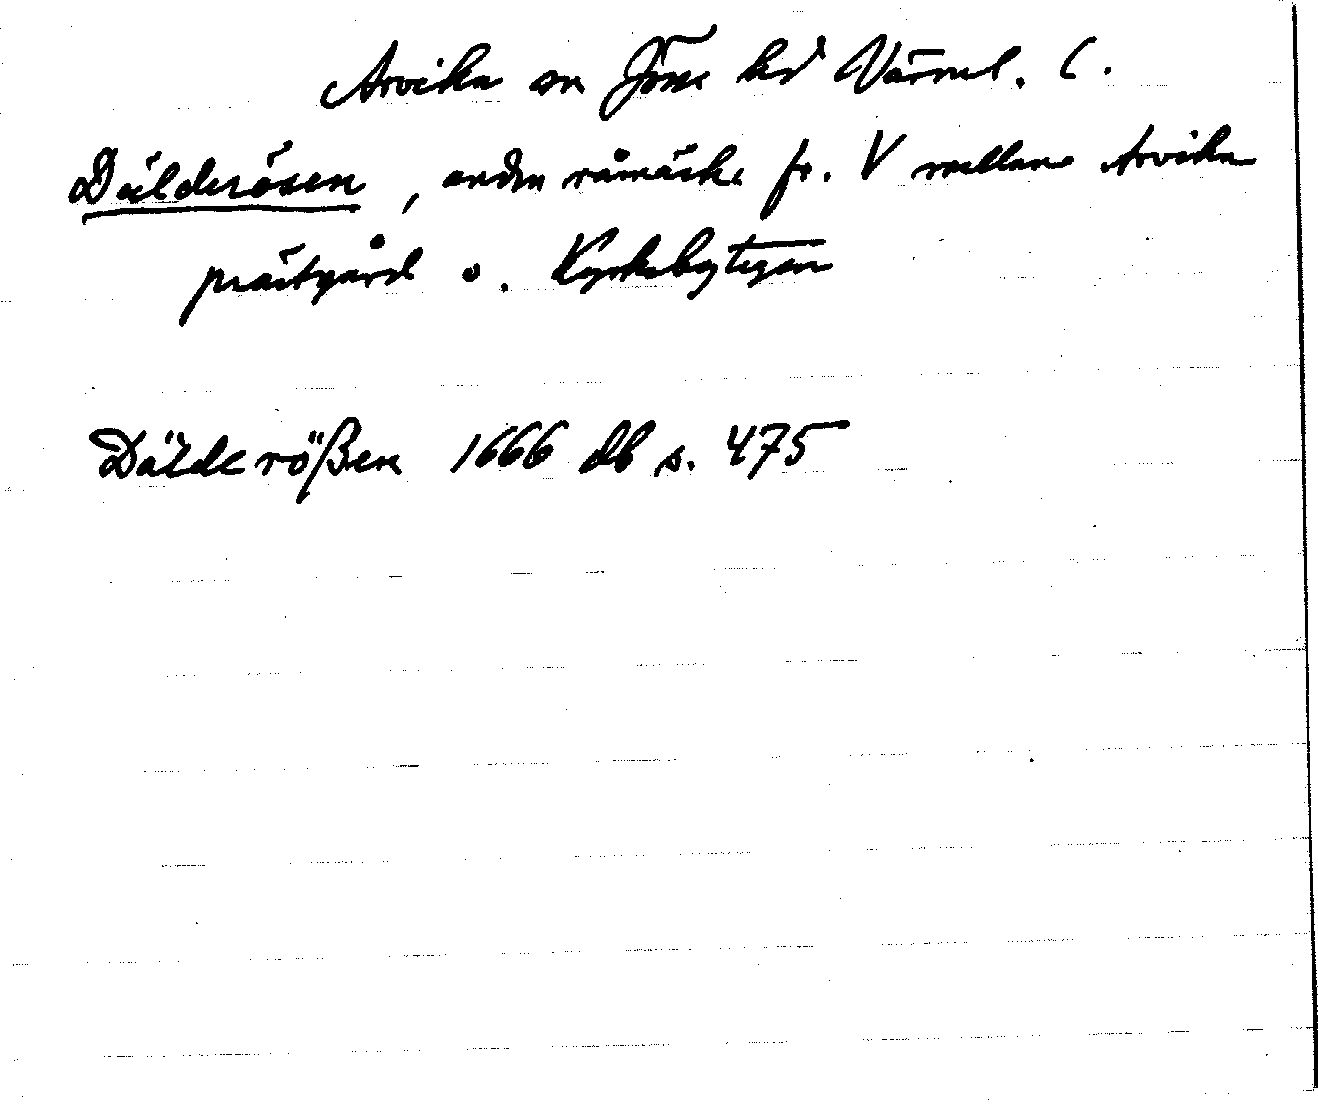 Arvika sn Jösse hd Värml. l.
Dälderösen, andra råmärke fr. V mellan Arvika
prästgård o. Kyrkebytegen
Dälderößen 1666 db s. 475